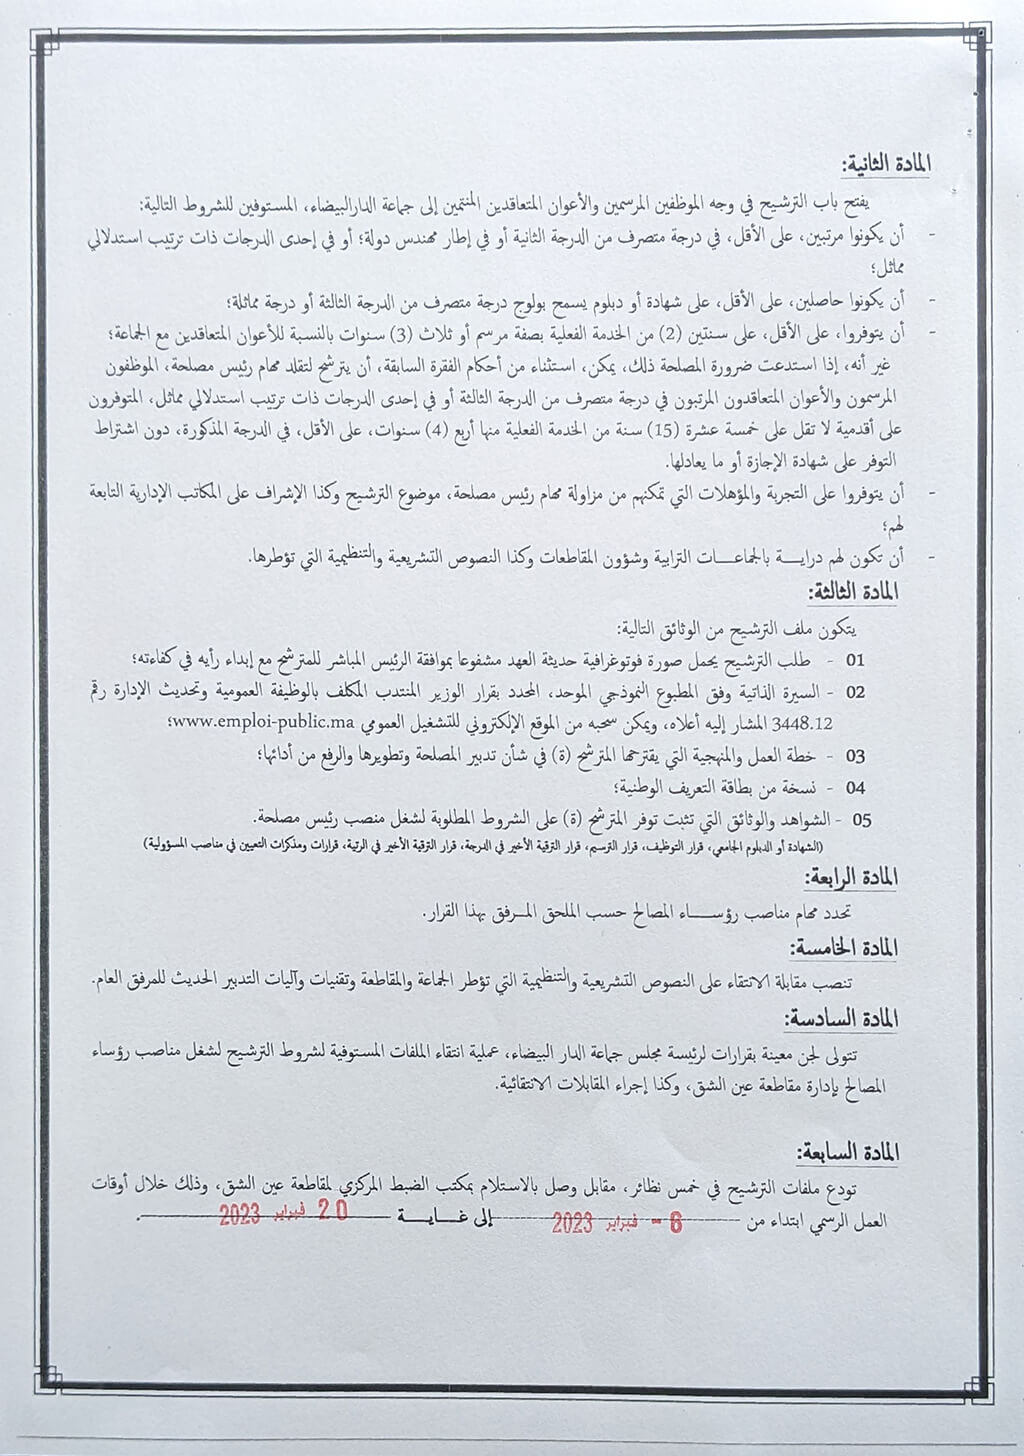 المادة الثانية:
يفتح باب الترشيح في وجه الموظفين المرسمين والأعوان المتعاقدين المنتمين إلى جماعة الدارالبيضاء، المستوفين للشروط التالية:
- أن يكونوا مرتبين، على الأقل، في درجة متصرف من الدرجة الثانية أو في إطار مهندس دولة؛ أو في إحدى الدرجات ذات ترتيب استدلالي
مماثل؛
- أن يكونوا حاصلين، على الأقل، على شهادة أو دبلوم يسمح بولوج درجة متصرف من الدرجة الثالثة أو درجة مماثلة؛
- أن يتوفروا، على الأقل، على سنتين (2) من الخدمة الفعلية بصفة مرسم أو ثلاث (3) سنوات بالنسبة للأعوان المتعاقدين مع الجماعة؛
غير أنه، إذا استدعت ضرورة المصلحة ذلك، يمكن، استثناء من أحكام الفقرة السابقة، أن يترشح لتقلد مهام رئيس مصلحة، الموظفون
المرسمون والأعوان المتعاقدون المرتبون في درجة متصرف من الدرجة الثالثة أو في إحدى الدرجات ذات ترتيب استدلالي مماثل، المتوفرون
على أقدمية لا تقل على خمسة عشرة (15) سنة من الخدمة الفعلية منها أربع (4) سنوات، على الأقل، في الدرجة المذكورة، دون اشتراط
التوفر على شهادة الإجازة أو ما يعادلها.
- أن يتوفروا على التجربة والمؤهلات التي تمكنهم من مزاولة مهام رئيس مصلحة، موضوع الترشيح وكذا الإشراف على المكاتب الإدارية التابعة
لهم؛
- أن تكون لهم درايـــة بالجماعـــات الترابية وشؤون المقاطعات وكذا النصوص التشريعية والتنظيمية التي تؤطرها.
المادة الثالثة:
يتكون ملف الترشيح من الوثائق التالية:
01 - طلب الترشيح يحمل صورة فوتوغرافية حديثة العهد مشفوعا بموافقة الرئيس المباشر للمترشح مع إبداء رأيه في كفاءته؛
02 - السيرة الذاتية وفق المطبوع النموذجي الموحد، المحدد بقرار الوزير المنتدب المكلف بالوظيفة العمومية وتحديث الإدارة رقم
3448.12 المشار إليه أعلاه، ويمكن سحبه من الموقع الإلكتروني للتشغيل العمومي www.emploi-public.ma؛
03 - خطة العمل والمنهجية التي يقترحها المترشح (ة) في شأن تدبير المصلحة وتطويرها والرفع من أدائها؛
04 - نسخة من بطاقة التعريف الوطنية؛
05 - الشواهد والوثائق التي تثبت توفر المترشح (ة) على الشروط المطلوبة لشغل منصب رئيس مصلحة.
(الشهادة أو الدبلوم الجامعي، قرار التوظيف، قرار الترسيم، قرار الترقية الأخير في الدرجة، قرار الترقية الأخير في الرتبة، قرارات ومذكرات التعيين في مناصب المسؤولية)
المادة الرابعة:
تحدد مهام مناصب رؤســـاء المصالح حسب الملحق المـــرفق بهذا القرار.
المادة الخامسة:
تنصب مقابلة الانتقاء على النصوص التشريعية والتنظيمية التي تؤطر الجماعة والمقاطعة وتقنيات وآليات التدبير الحديث للمرفق العام.
المادة السادسة:
تتولى لجن معينة بقرارات لرئيسة مجلس جماعة الدار البيضاء، عملية انتقاء الملفات المستوفية لشروط الترشيح لشغل مناصب رؤساء
المصالح بإدارة مقاطعة عين الشق، وكذا إجراء المقابلات الانتقائية.
المادة السابعة:
تودع ملفات الترشيح في خمس نظائر، مقابل وصل بالاستلام بمكتب الضبط المركزي لمقاطعة عين الشق، وذلك خلال أوقات
العمل الرسمي ابتداء من 6 - فبراير 2023 إلى غـــايـــة 20 فبراير 2023.